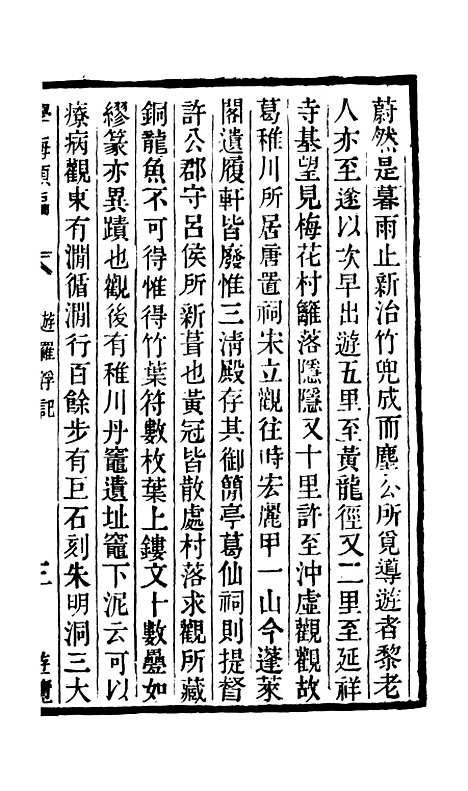 蔚然是暮雨止新治竹兜成而塵公所覓導遊者黎老
人亦至遂以次早出遊五里至黃龍徑又二里至延祥
寺基望見梅花村籬落隱隱又十里許至沖虛觀觀故
葛稚川所居唐置祠宋立觀往時宏麗甲一山今蓬萊
閣遺履軒皆廢惟三清殿存其御簡亭葛仙祠則提督
許公郡守呂侯所新葺也黃冠皆散處村落求觀所藏
銅龍魚不可得惟得竹葉符數枚葉上鏤文十數疊如
繆篆亦異蹟也觀後有稚川丹竈遺址竈下泥云可以
療病觀東有澗循澗行百餘步有巨石刻朱明洞三大
學海類編 遊羅浮記 三 遊覽